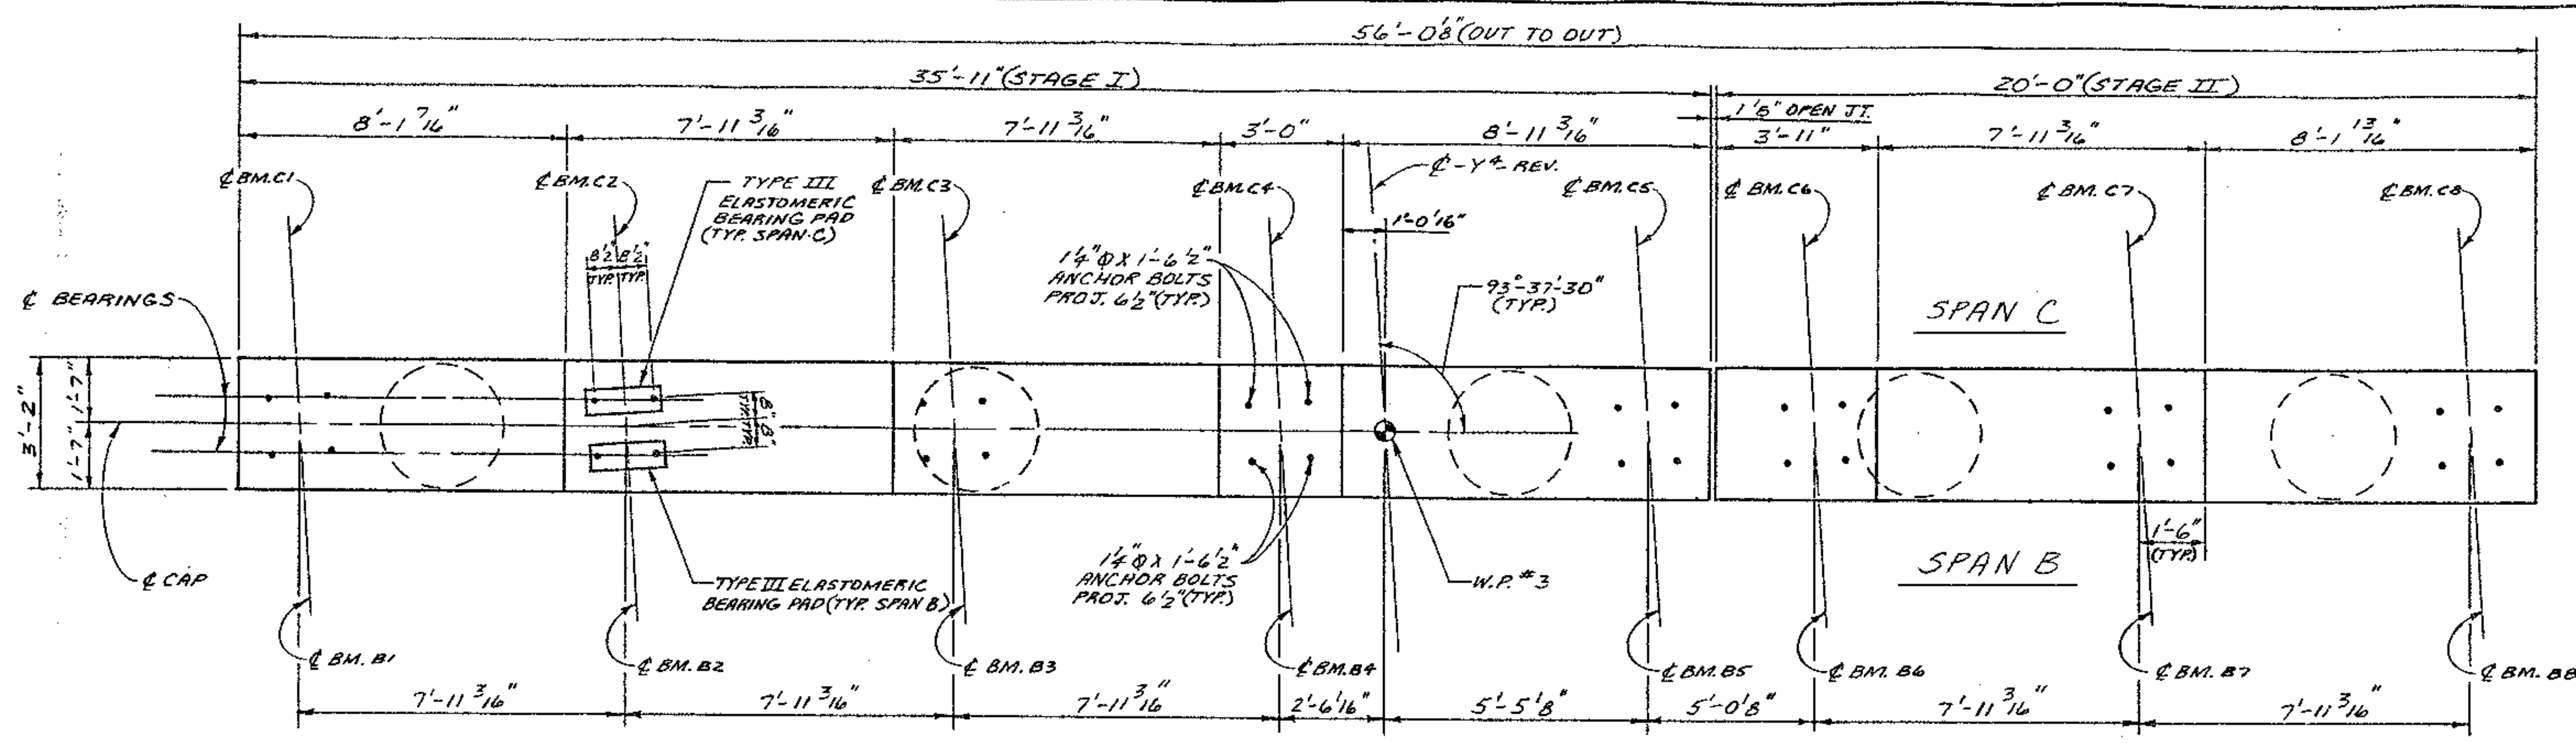 56'-0 1/8" (OUT TO OUT)
35'-11" (STAGE I)
20'-0" (STAGE II)
1 1/8" OPEN JT.
8'-1 7/16"
7'-11 3/16"
7'-11 3/16"
3'-0"
8'-11 3/16"
3'-11"
7'-11 3/16"
8'-1 13/16"
℄ BM. C1
℄ BM. C2
TYPE III
ELASTOMERIC
BEARING PAD
(TYP. SPAN C)
℄ BM. C3
℄ BM. C4
℄ -Y4- REV.
℄ BM. C5
℄ BM. C6
℄ BM. C7
℄ BM. C8
1'-0 1/16"
8 1/2" 8 1/2"
TYP. TYP.
1 1/4" Φ X 1'-6 1/2"
ANCHOR BOLTS
PROJ. 6 1/2" (TYP.)
93°-37'-30"
(TYP.)
SPAN C
℄ BEARINGS
3'-2"
1'-7"
1'-7"
8" 8"
TYP. TYP.
℄ CAP
TYPE III ELASTOMERIC
BEARING PAD (TYP. SPAN B)
1 1/4" Φ X 1'-6 1/2"
ANCHOR BOLTS
PROJ. 6 1/2" (TYP.)
W.P. #3
SPAN B
1'-6"
(TYP.)
℄ BM. B1
℄ BM. B2
℄ BM. B3
℄ BM. B4
℄ BM. B5
℄ BM. B6
℄ BM. B7
℄ BM. B8
7'-11 3/16"
7'-11 3/16"
7'-11 3/16"
2'-6 1/16"
5'-5 1/8"
5'-0 1/8"
7'-11 3/16"
7'-11 3/16"